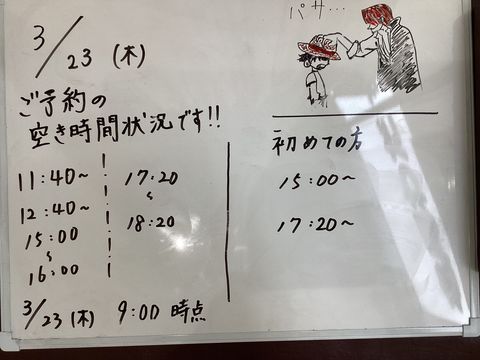 3/23 (木)
ご予約の
空き時間状況です!!
11:40~
12:40~
15:00
~
16:00
17:20
~
18:20
3/23 (木) 9:00 時点
パサ…
初めての方
15:00~
17:20~